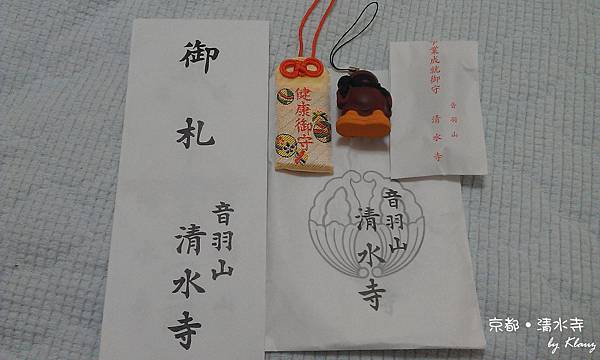 御札
音羽山
清水寺
健康御守
音羽山
清水寺
業成就御守
音羽山
清水寺
京都•清水寺
by Klauz